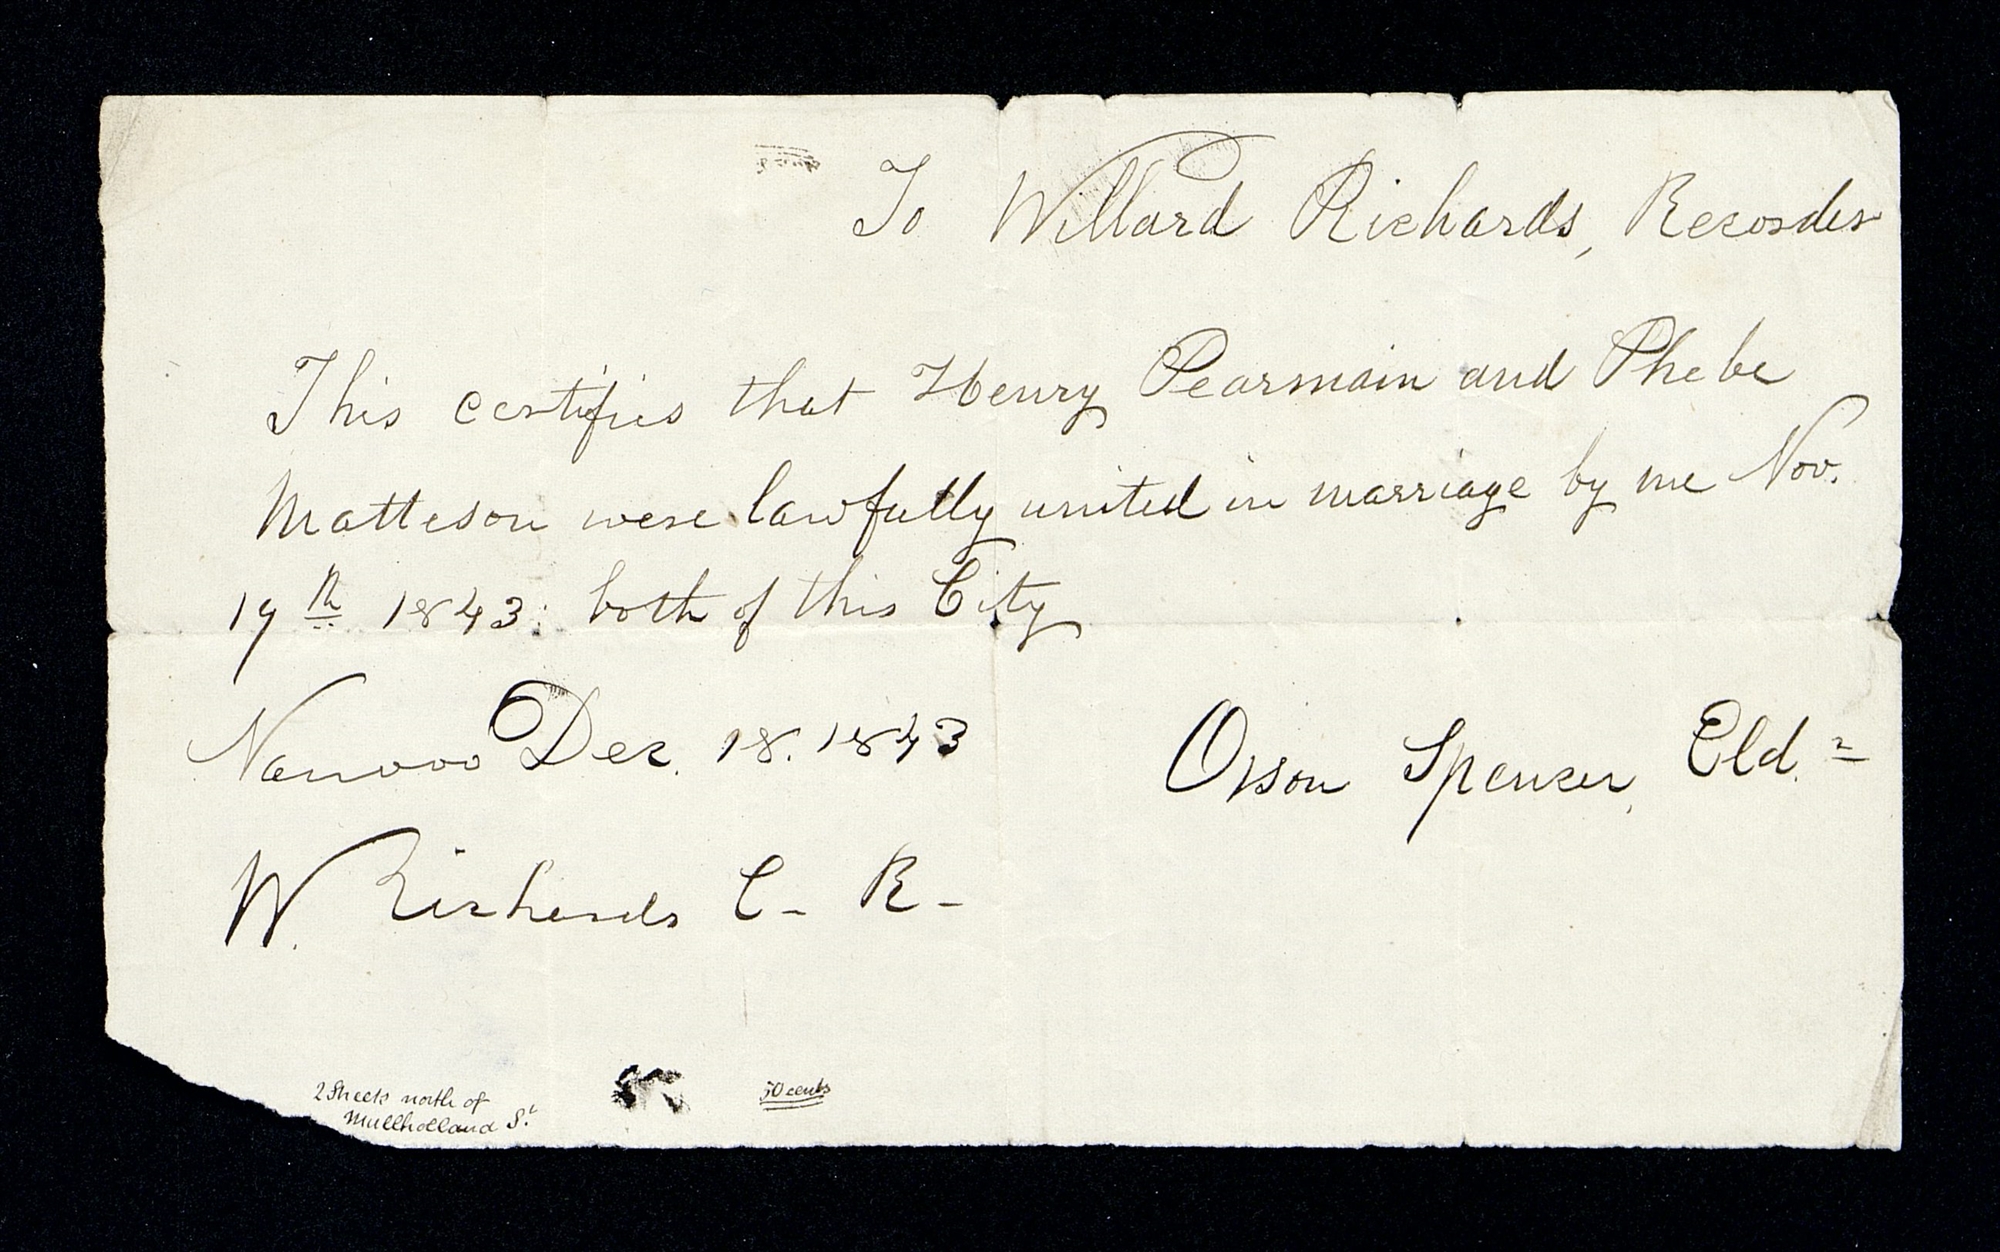 To Willard Richards, Recorder
This certifies that Henry Pearmain and Phebe
Matteson were lawfully united in marriage by me Nov.
19th 1843: both of this City
Nauvoo Dec. 18. 1843
Orson Spencer, Eldr
W. Richards C- R-
2 Streets north of
Mullholland St
50 cents